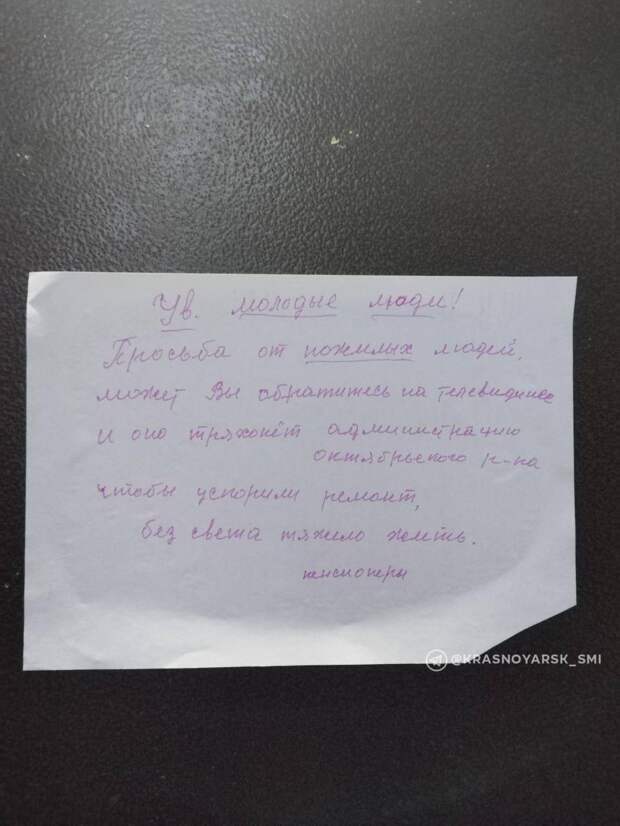 Ув. молодые люди!
Просьба от пожилых людей,
может Вы обратитесь на телевидинее
и оно тряхонёт администрацию
октябрьского р-на
чтобы ускорили ремонт,
без света тяжело жить.
пенсионеры
@KRASNOYARSK_SMI